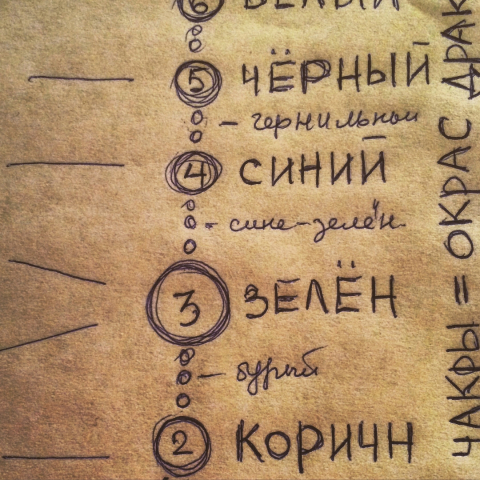 6 БЕЛЫЙ
5 ЧЁРНЫЙ
- чернильный
4 СИНИЙ
- сине-зелён.
3 ЗЕЛЁН
- бурый
2 КОРИЧН
ЧАКРЫ = ОКРАС ДРАК